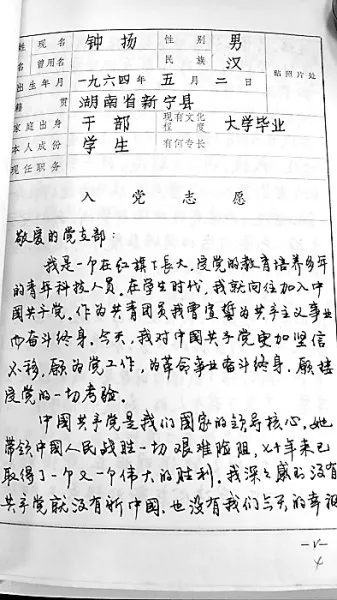 姓 现名 钟扬 性别 男
名 曾用名 民族 汉
出生年月 一九六四年 五月二日 贴照片处
籍贯 湖南省新宁县
家庭出身 干部 现有文化程度 大学毕业
本人成份 学生 有何专长
现任职务
入党志愿
敬爱的党支部：
我是一个在红旗下长大，受党的教育培养多年
的青年科技人员。在学生时代，我就向往加入中
国共产党。作为共青团员我曾宣誓为共产主义事业
而奋斗终身。今天，我对中国共产党更加坚信
不移，愿为党工作，为革命事业奋斗终身，愿接
受党的一切考验。
中国共产党是我们国家的领导核心。她
带领中国人民战胜一切艰难险阻，七十年来已
取得了一个又一个伟大的胜利。我深深感到没有
共产党就没有新中国，也没有我们今天的幸福
4